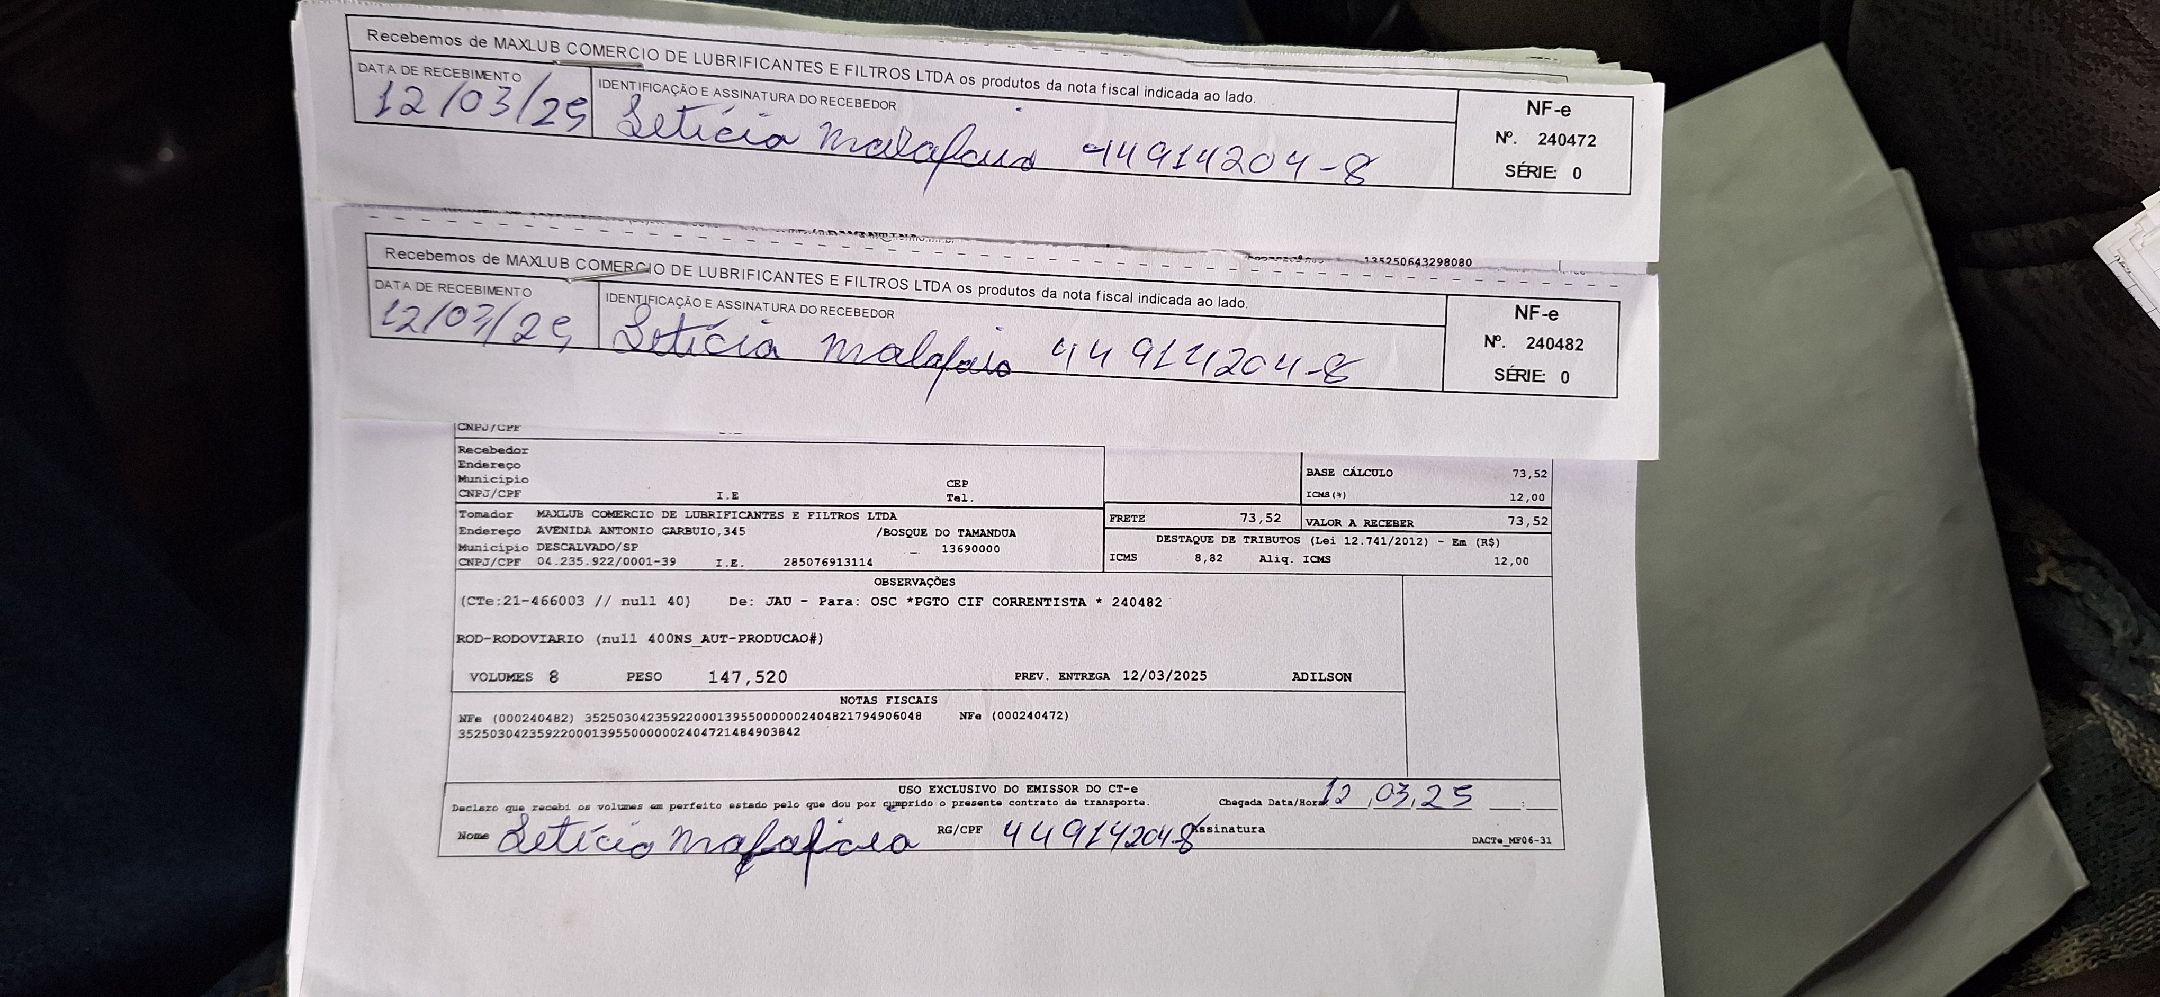 Recebemos de MAXLUB COMERCIO DE LUBRIFICANTES E FILTROS LTDA os produtos da nota fiscal indicada ao lado.
DATA DE RECEBIMENTO IDENTIFICAÇÃO E ASSINATURA DO RECEBEDOR
12/03/25 Letícia Malafaia 44914204-8
NF-e
Nº. 240472
SÉRIE: 0
135250643298080
Recebemos de MAXLUB COMERCIO DE LUBRIFICANTES E FILTROS LTDA os produtos da nota fiscal indicada ao lado.
DATA DE RECEBIMENTO IDENTIFICAÇÃO E ASSINATURA DO RECEBEDOR
12/03/25 Letícia Malafaia 44914204-8
NF-e
Nº. 240482
SÉRIE: 0
CNPJ/CPF
Recebedor
Endereço
Municipio CEP
CNPJ/CPF I.E Tel.
BASE CÁLCULO 73,52
ICMS(%) 12,00
FRETE 73,52 VALOR A RECEBER 73,52
Tomador MAXLUB COMERCIO DE LUBRIFICANTES E FILTROS LTDA
Endereço AVENIDA ANTONIO GARBUIO,345 /BOSQUE DO TAMANDUA
Municipio DESCALVADO/SP 13690000
CNPJ/CPF 04.235.922/0001-39 I.E. 285076913114
DESTAQUE DE TRIBUTOS (Lei 12.741/2012) - Em (R$)
ICMS 8,82 Aliq. ICMS 12,00
OBSERVAÇÕES
(CTe:21-466003 // null 40) De: JAU - Para: OSC *PGTO CIF CORRENTISTA * 240482
ROD-RODOVIARIO (null 400NS_AUT-PRODUCAO#)
VOLUMES 8 PESO 147,520 PREV. ENTREGA 12/03/2025 ADILSON
NOTAS FISCAIS
NFe (000240482) 35250304235922000139550000002404821794906048 NFe (000240472)
35250304235922000139550000002404721484903842
USO EXCLUSIVO DO EMISSOR DO CT-e
Declaro que recebi os volumes em perfeito estado pelo que dou por cumprido o presente contrato de transporte. Chegada Data/Hora 12,03,25 __:__
Nome Letícia Malafaia RG/CPF 449142048 Assinatura DACTe_MF06-31